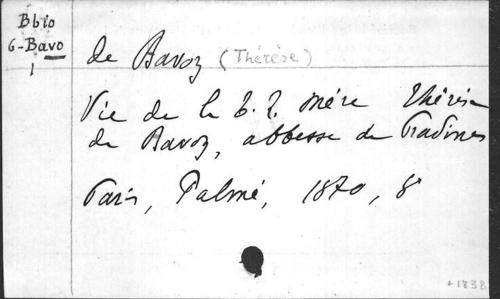 Bbio
G-Bavo
1
de Bavoz (Thérèse)
Vie de la T. R. Mère Thérèse
de Bavoz, abbesse de Pradines
Paris, Palmé, 1870, 8°
+1838